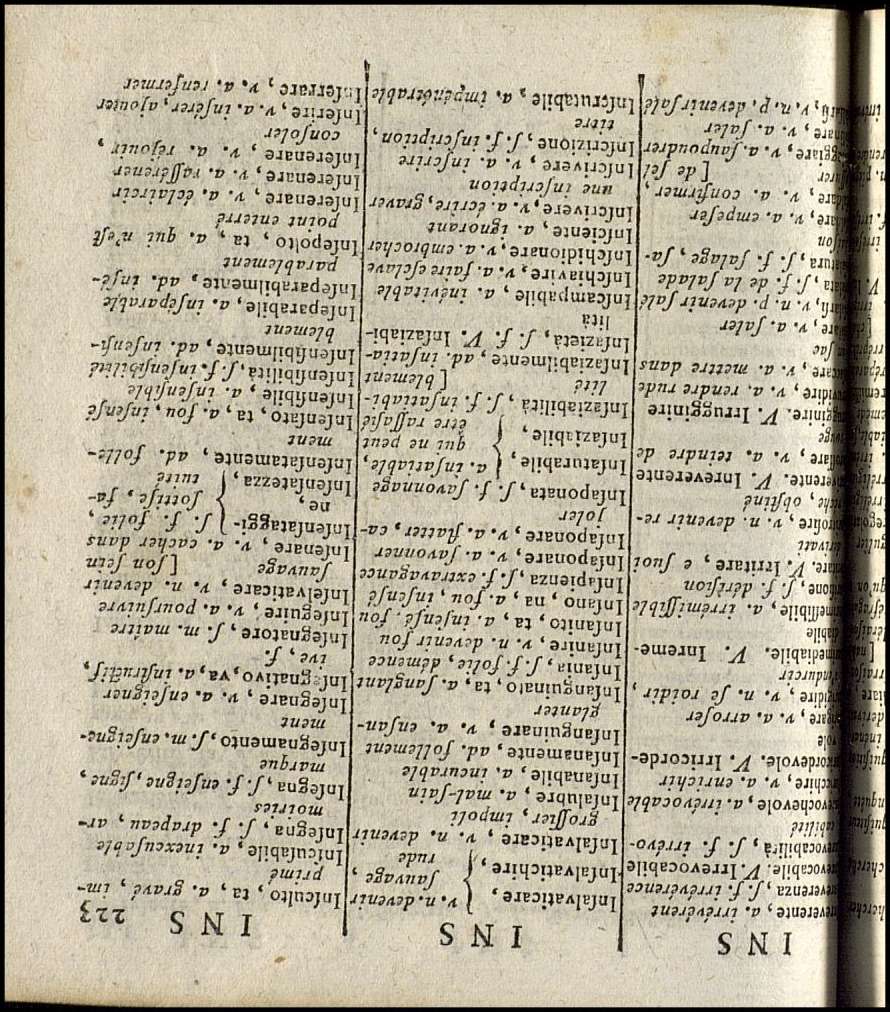 INS
everente, a. irrévérent
reverenza, ſ. f. irrévérence
revocabile. V. Irrevocabile
evocabilità, ſ. f. irrévo-
cabilité
evochevole, a. irrévocable
ricchire, v. a. enrichir
cordevole. V. Irricorde-
vole
igare, v. a. arroſer
rigidire, v. n. ſe roidir,
endurcir
mediabile. V. Inreme-
diabile
meſſibile, a. irrémiſſible
ſione, ſ. f. dériſion
itare. V. Irritare, e ſuoi
erivati
troſire, v. n. devenir re-
vêche, obſtiné
verente. V. Inreverente
oſſare, v. a. teindre de
rouge
ugginire. V. Irrugginire
uvidire, v. a. rendre rude
accare, v. a. mettre dans
un ſac
alare, v. a. ſaler
alarſi, v. n. p. devenir ſalé
alata, ſ. f. de la ſalade
alatura, ſ. f. ſalage, ſa-
laiſon
dare, v. a. empeſer
dare, v. a. confirmer,
aſſurer [de ſel
eggiare, v. a. ſaupoudrer
v. a. ſaler
v. n. p. devenir ſalé
INS
Inſalvaticare, } v. n. devenir
Inſalvatichire, } ſauvage,
rude
Inſalvaticare, v. n. devenir
groſſier, impoli
Inſalubre, a. mal-ſain
Inſanabile, a. incurable
Inſanamente, ad. follement
Inſanguinare, v. a. enſan-
glanter
Inſanguinato, ta, a. ſanglant
Inſania, ſ. f. folie, démence
Inſanire, v. n. devenir fou
Inſanito, ta, a. inſenſé, fou
Inſano, na, a. fou, inſenſé
Inſapienza, ſ. f. extravagance
Inſaponare, v. a. ſavonner
Inſaponare, v. a. flatter, ca-
joler
Inſaponata, ſ. f. ſavonnage
Inſaturabile, } a. inſatiable,
Inſaziabile, } qui ne peut
être raſſaſié
Inſaziabilità, ſ. f. inſatiabi-
lité [blement
Inſaziabilmente, ad. inſatia-
Inſazietà, ſ. f. V. Inſaziabi-
lità
Inſcampabile, a. inévitable
Inſchiavire, v. a. faire eſclave
Inſchidionare, v. a. embrocher
Inſciente, a. ignorant
Inſcrivere, v. a. écrire, graver
une inſcription
Inſcrivere, v. a. inſcrire
Inſcrizione, ſ. f. inſcription,
titre
Inſcrutabile, a. impénétrable
INS 223
Inſculto, ta, a. gravé, im-
primé
Inſcuſabile, a. inexcuſable
Inſegna, ſ. f. drapeau, ar-
moiries
Inſegna, ſ. f. enſeigne, ſigne,
marque
Inſegnamento, ſ. m. enſeigne-
ment
Inſegnare, v. a. enſeigner
Inſegnativo, va, a. inſtructif,
ive, f.
Inſegnatore, ſ. m. maître
Inſeguire, v. a. pourſuivre
Inſelvaticare, v. n. devenir
ſauvage [ſon ſein
Inſenare, v. a. cacher dans
Inſenſataggi- } ſ. f. folie,
ne, } ſottiſe, fa-
Inſenſatezza, } tuité
Inſenſatamente, ad. folle-
ment
Inſenſato, ta, a. fou, inſenſé
Inſenſibile, a. inſenſible
Inſenſibilità, ſ. f. inſenſibilité
Inſenſibilmente, ad. inſenſi-
blement
Inſeparabile, a. inſéparable
Inſeparabilmente, ad. inſé-
parablement
Inſepolto, ta, a. qui n'eſt
point enterré
Inſerenare, v. a. éclaircir
Inſerenare, v. a. raſſéréner
Inſerenare, v. a. réjouir,
conſoler
Inſerire, v. a. inſérer, ajouter
Inſerrare, v. a. renfermer